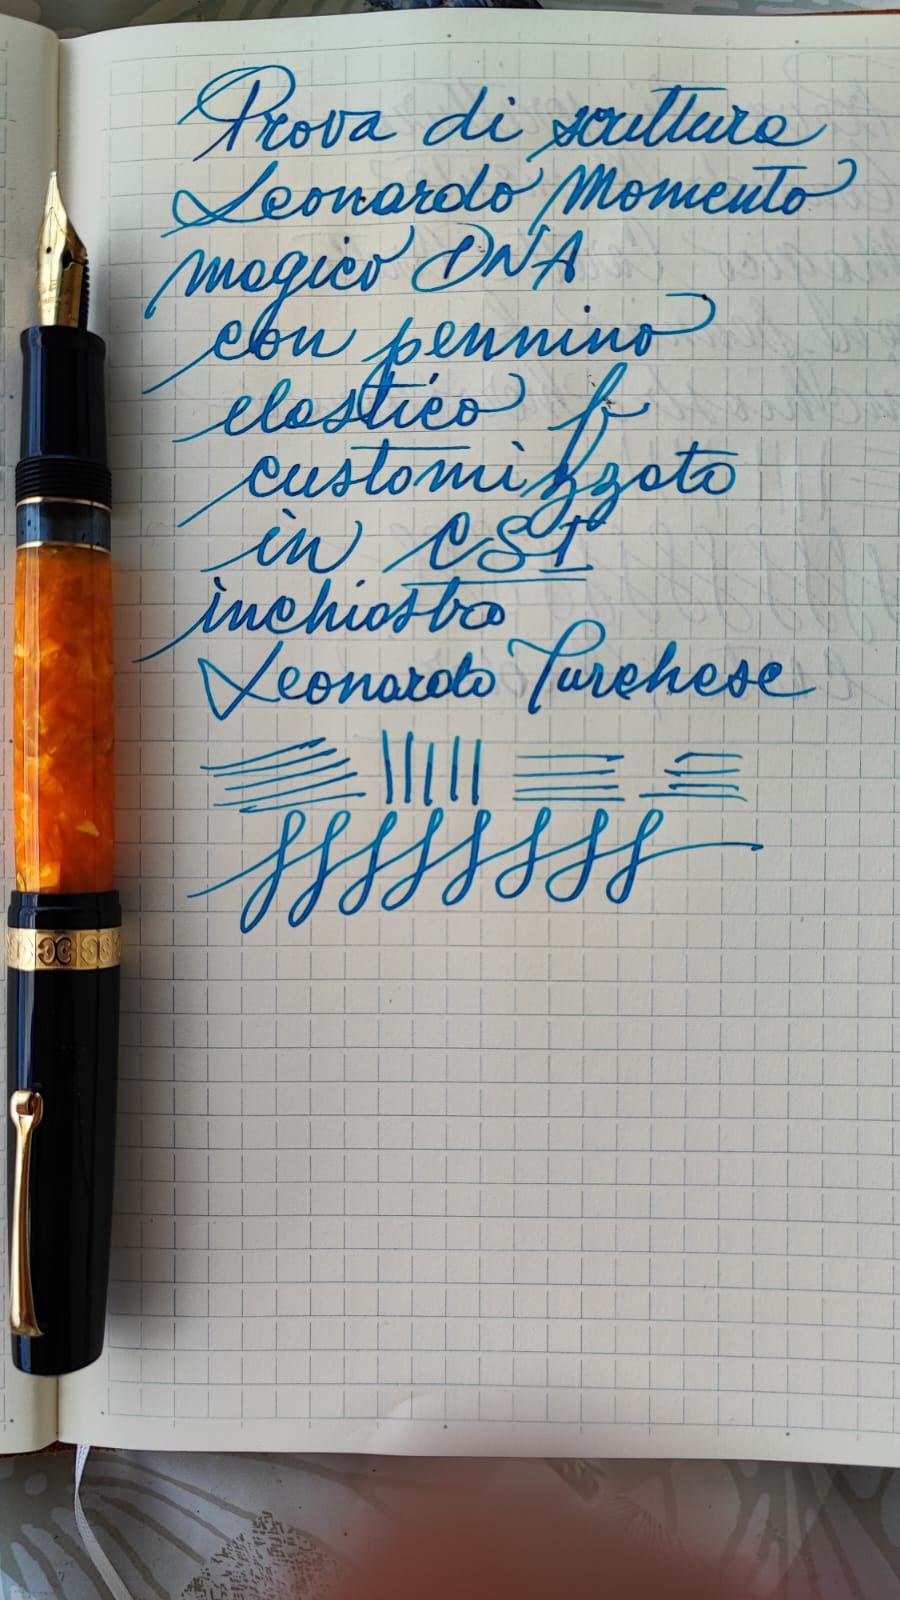 Prova di scrittura
Leonardo Momento
magico DNA
con pennino
elastico f
customizzato
in CSI
inchiostro
Leonardo Turchese